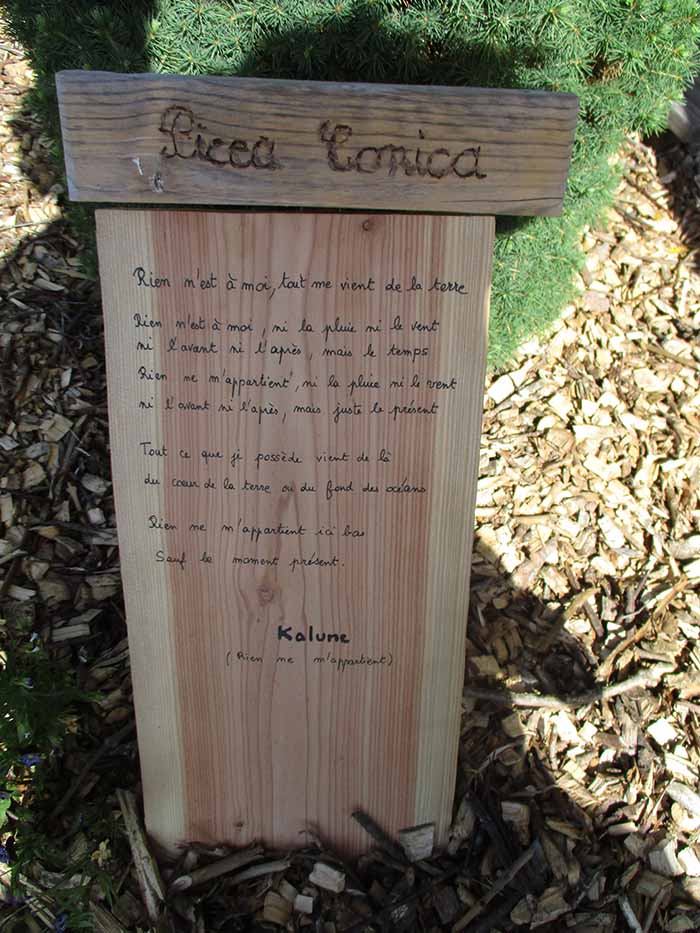 Picea Conica
Rien n'est à moi, tout me vient de la terre
Rien n'est à moi, ni la pluie ni le vent
ni l'avant ni l'après, mais le temps
Rien ne m'appartient, ni la pluie ni le vent
ni l'avant ni l'après, mais juste le présent
Tout ce que je possède vient de là
du cœur de la terre ou du fond des océans
Rien ne m'appartient ici bas
Sauf le moment présent.
Kalune
(Rien ne m'appartient)